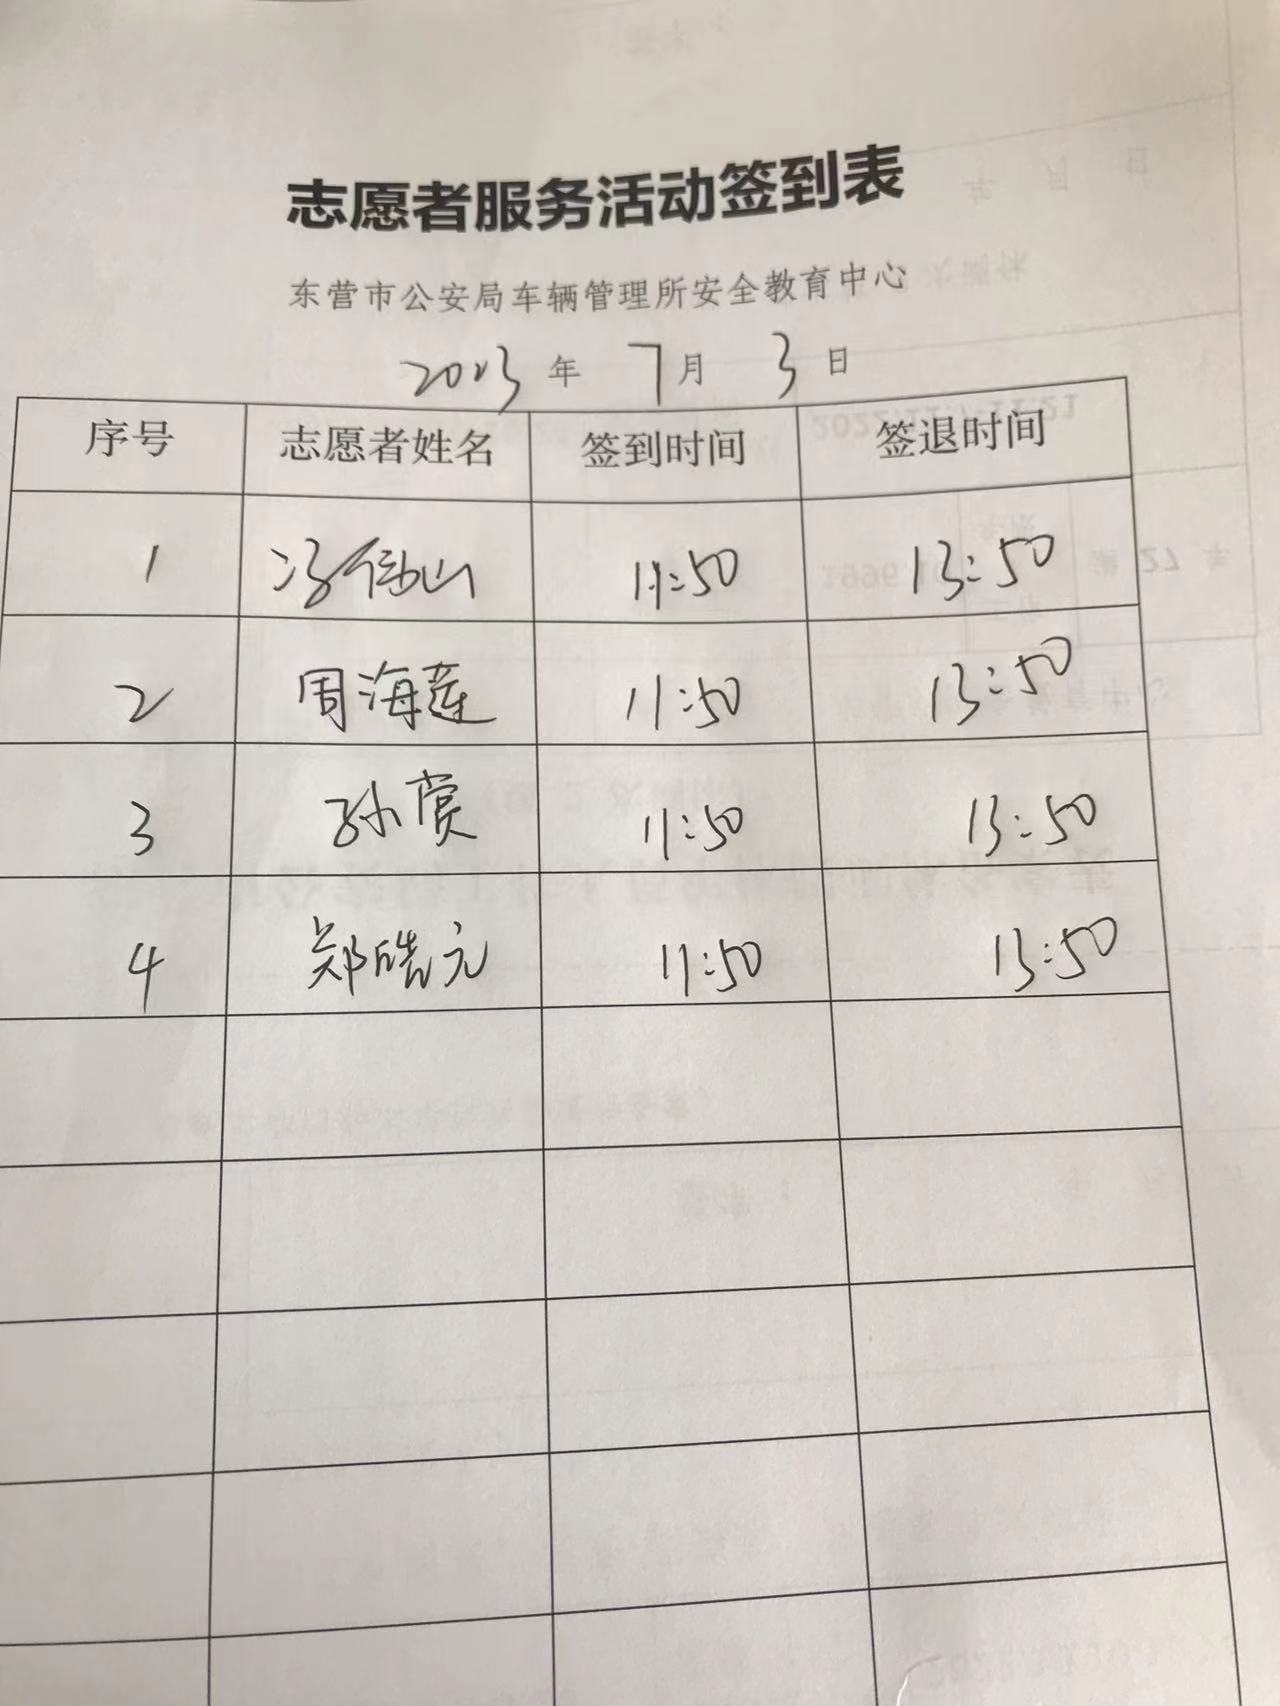 志愿者服务活动签到表
东营市公安局车辆管理所安全教育中心
2023 年 7 月 3 日
序号 志愿者姓名 签到时间 签退时间
1 11:50 13:50
2 周海莲 11:50 13:50
3 孙赏 11:50 13:50
4 郑皓元 11:50 13:50